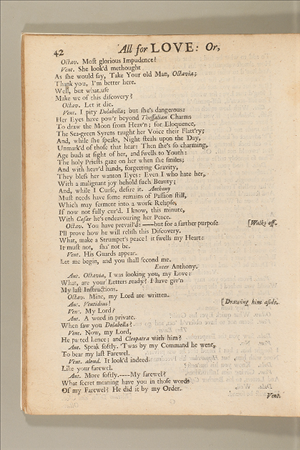 42 All for LOVE: Or,
Octav. Most glorious Impudence!
Vent. She look'd methought
As she would say, Take Your old Man, Octavia;
Thank you, I'm better here.
Well, but what use
Make we of this discovery?
Octav. Let it die.
Vent. I pity Dolabella; but she's dangerous:
Her Eyes have pow'r beyond Thessalian Charms
To draw the Moon from Heav'n; for Eloquence,
The Sea-green Syrens taught her Voice their Flatt'ry;
And, while she speaks, Night steals upon the Day,
Unmark'd of those that hear: Then she's so charming,
Age buds at sight of her, and swells to Youth:
The holy Priests gaze on her when she smiles;
And with heav'd hands, forgetting Gravity,
They bless her wanton Eyes: Even I who hate her,
With a malignant joy behold such Beauty;
And, while I Curse, desire it. Anthony
Must needs have some remains of Passion still,
Which may ferment into a worse Relapse,
If now not fully cur'd. I know, this minute,
With Cæsar he's endeavouring her Peace.
Octav. You have prevail'd:——but for a farther purpose [Walks off.
I'll prove how he will relish this Discovery.
What, make a Strumpet's peace! it swells my Heart:
It must not, sha' not be.
Vent. His Guards appear.
Let me begin, and you shall second me.
Enter Anthony.
Ant. Octavia, I was looking you, my Love:
What, are your Letters ready? I have giv'n
My last Instructions.
Octav. Mine, my Lord are written.
Ant. Ventidius! [Drawing him aside.
Vent. My Lord?
Ant. A word in private.
When saw you Dolabella?
Vent. Now, my Lord,
He parted hence; and Cleopatra with him?
Ant. Speak softly. 'Twas by my Command he went,
To bear my last Farewel.
Vent. aloud. It look'd indeed
Like your farewel.
Ant. More softly.----My farewel?
What secret meaning have you in those words
Of my Farewel? He did it by my Order.
Vent.